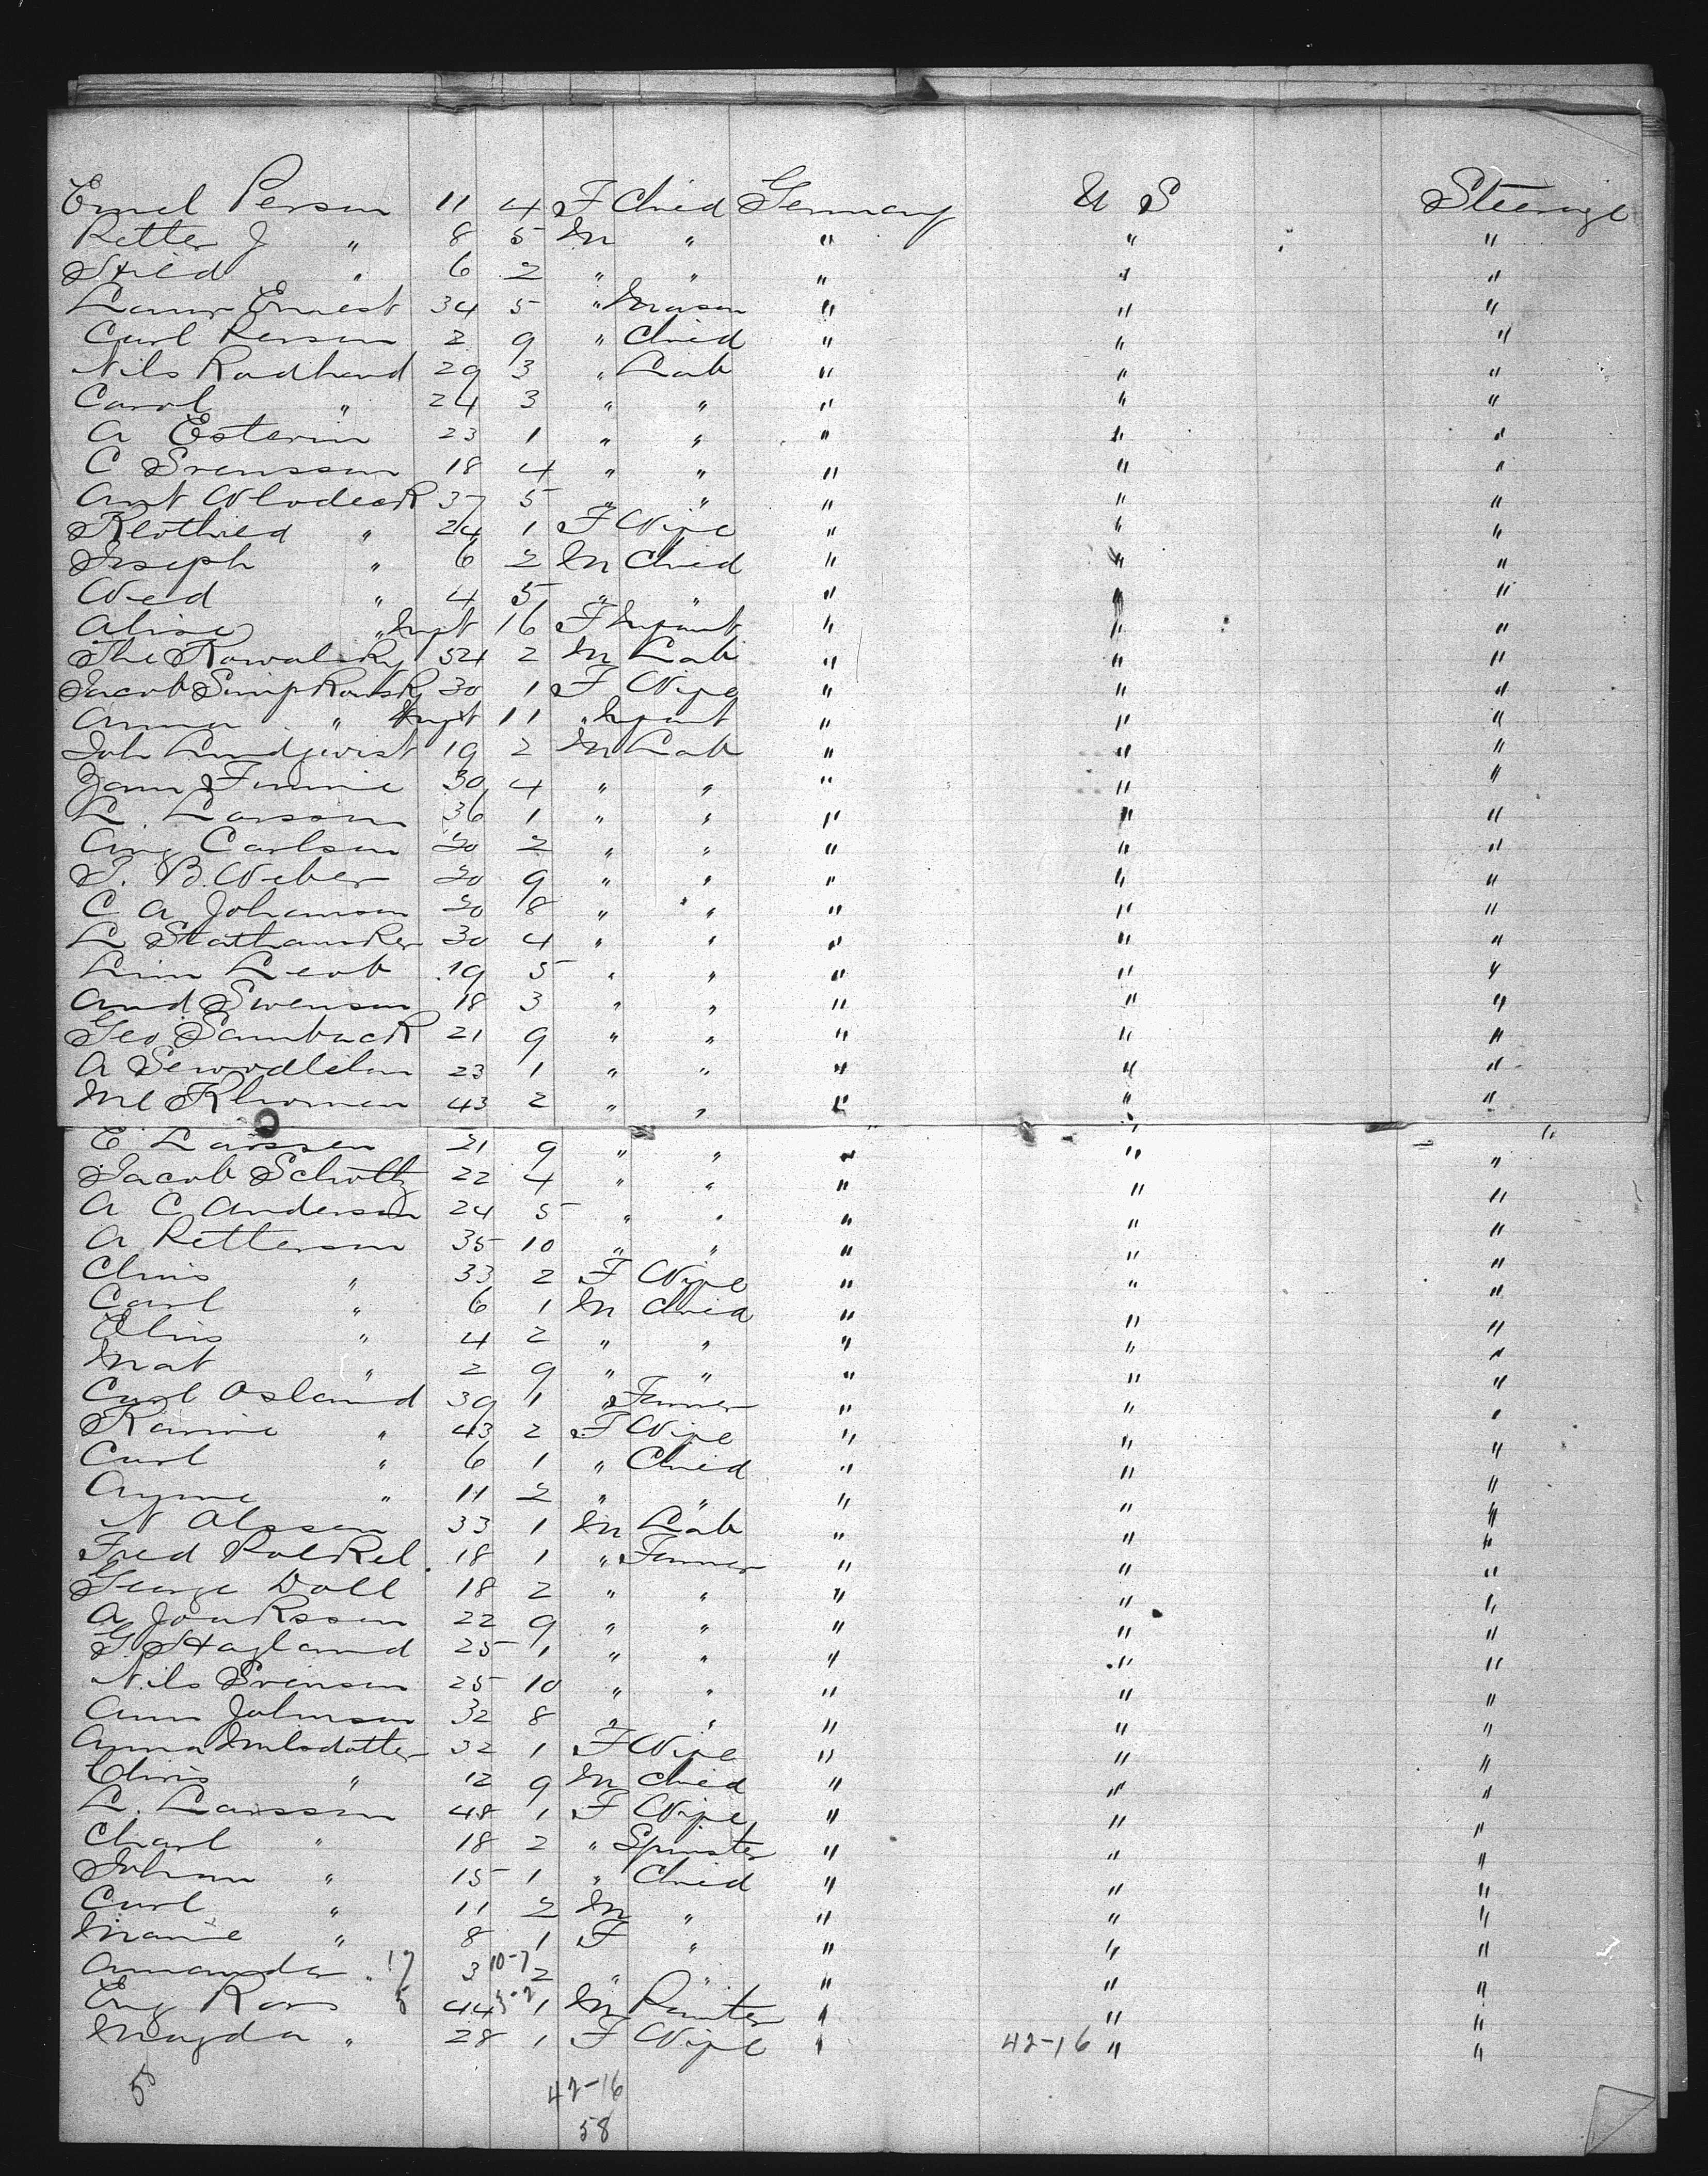 Emel Person 11 4 F Child Germany U S Steerage
Petter J " 8 5 M " " " "
Hild " 6 2 " " " " "
Ernest 34 5 " Mason " " "
Carl Person 2 9 " Child " " "
Nils Rodhand 29 3 " Lab " " "
Carol " 24 3 " " " " "
A Esterin 23 1 " " " " "
C Svensson 18 4 " " " " "
Ant Wlodeck 37 5 " " " " "
Klothied " 24 1 F Wife " " "
Joseph " 6 2 M Child " " "
Wed " 4 5 " " " " "
Alise " Inft 16 F Infant " " "
The Kowalsky 2 M Lab " " "
Jacob SimpKowsky 30 1 F Wife " " "
Anna " Inft 11 " Infant " " "
Joh Lundqwist 19 2 M Lab " " "
30 4 " " " " "
L. Larsson 36 1 " " " " "
Aug Carlson 20 2 " " " " "
S. B. Weber 20 9 " " " " "
C A Johanson 20 8 " " " " "
L 30 4 " " " " "
Leob 19 5 " " " " "
And Swenson 18 3 " " " " "
Geo SambucK 21 9 " " " " "
A 23 1 " " " " "
Ml Kloman 43 2 " " " " "
E Larssen 21 9 " " " " "
Jacob Scholtz 22 4 " " " " "
A C Anderson 24 5 " " " " "
A Petterson 35 10 " " " " "
Chris " 33 2 F Wife " " "
Carl " 6 1 M Child " " "
Elins " 4 2 " " " " "
Mat " 2 9 " " " " "
Carl Osland 39 1 " Farmer " " "
Karine " 43 2 F Wife " " "
Carl " 6 1 " Child " " "
" 11 2 " " " " "
N Olsson 33 1 M Lab " " "
Fred Polkel 18 1 " Farmer " " "
George Doll 18 2 " " " " "
A Jonksson 22 9 " " " " "
G. Hagland 25 1 " " " " "
Nils Svenson 25 10 " " " " "
Ann Johnson 32 8 " " " " "
Anna 32 1 F Wife " " "
Chris " 12 9 M Child " " "
L. Larsson 48 1 F Wife " " "
Charl " 18 2 " Spinster " " "
Johan " 15 1 " Child " " "
Carl " 11 2 M " " " "
Marie " 8 1 F " " " "
Amanda . 17 3 10-7 2 " " " " "
Eng Kars 5 44 5-2 1 M Painter " " "
Magda " 28 1 F Wife " 42-16 " "
5
42-16
58